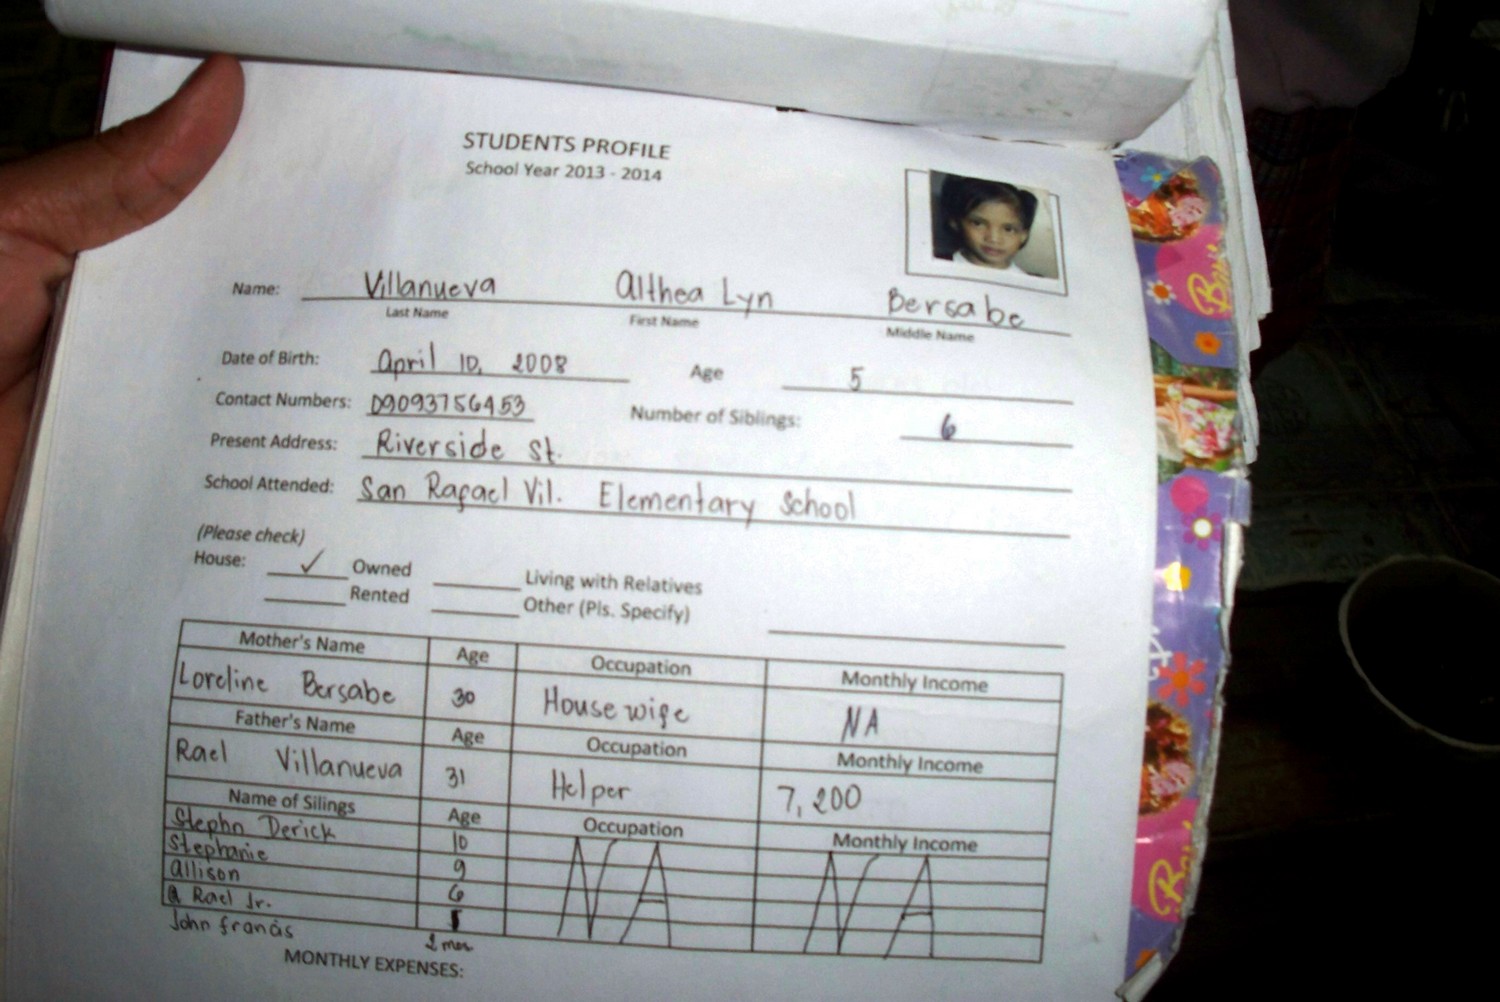 STUDENTS PROFILE
School Year 2013 - 2014
Name: Villanueva Althea Lyn Bersabe
Last Name First Name Middle Name
Date of Birth: April 10, 2008 Age 5
Contact Numbers: 09093756453 Number of Siblings: 6
Present Address: Riverside St.
School Attended: San Rafael Vil. Elementary School
(Please check)
House: ✓ Owned Living with Relatives
Rented Other (Pls. Specify)
Mother's Name Age Occupation Monthly Income
Loreline Bersabe 30 House wife NA
Father's Name Age Occupation Monthly Income
Rael Villanueva 31 Helper 7,200
Name of Silings Age Occupation Monthly Income
Stephn Derick 10 NA NA
Stephanie 9
allison 6
Rael Jr.
John francis 2 mos
MONTHLY EXPENSES: